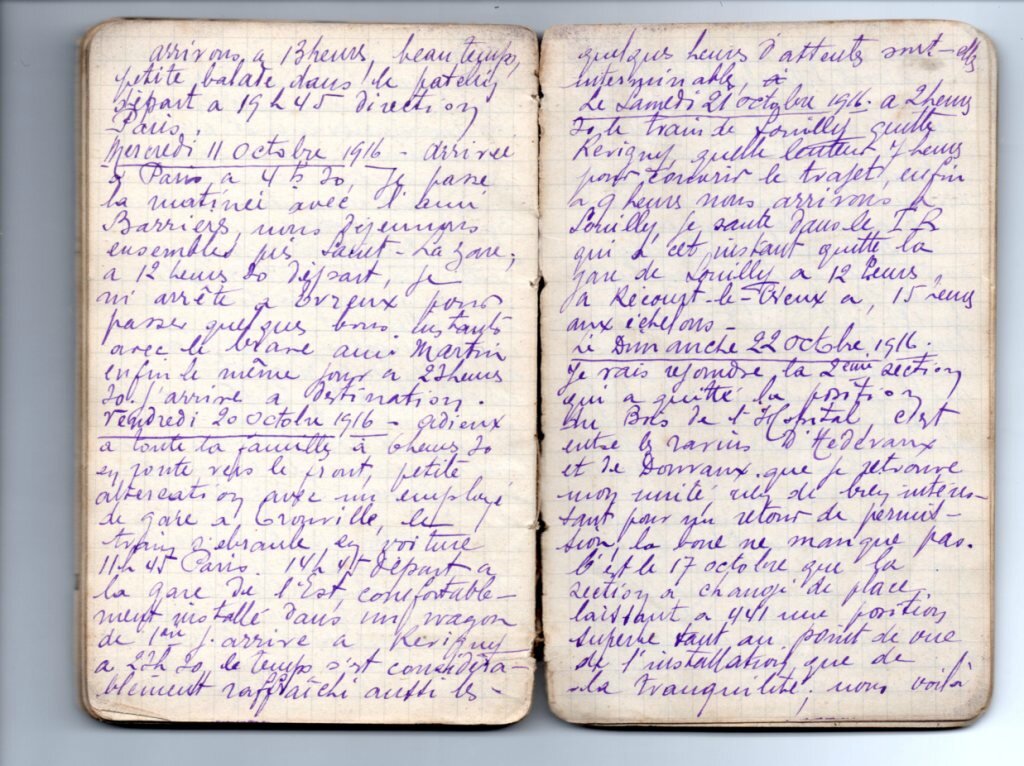 arrivons a 13 heures, beau temps,
petite balade dans le patelin
départ a 19 h 45 direction
Paris.
Mercredi 11 Octobre 1916 - arrivée
a Paris a 4 h 30, Je passe
la matinée avec l'ami
Barriers, nous déjeunons
ensembles, puis Saint-Lazare,
a 12 heures 30 départ, je
m'arrête a Evreux pour
passer quelques bons instants
avec le brave ami Martin
enfin le même jour a 23 heures
30 j'arrive a destination.
Vendredi 20 Octobre 1916 - adieux
a toute la famille a 6 heures 30
en route vers le front, petite
altercation avec un employé
de gare a Trouville, le
train s'ebranle, en voiture
11 h 45 Paris. 14 h 45 départ a
la gare de l'Est, confortable-
ment installé dans un wagon
de 1ère j'arrive a Revigny
a 23 h 30, le temps s'est considéra-
blement raffraîchi aussi les
quelques heures d'attente sont-elles
interminables,
Le Samedi 21 octobre 1916. a 2 heures
30, le train de Souilly quitte
Revigny, quelle lenteur 7 heures
pour couvrir le trajet, enfin
a 9 heures nous arrivons a
Souilly, je saute dans le T.R
qui a cet instant quitte la
gare de Souilly a 12 heures
a Récourt-le-Creux a, 15 heures
aux échelons -
Le Dimanche 22 octobre 1916.
Je vais rejoindre la 2ème section
qui a quitté la position
du Bois de l'Hospital c'est
entre les ravins d'Hédévaux
et de Donvaux que je retrouve
mon unité, rien de bien intéres-
sant pour un retour de permis-
sion, la boue ne manque pas.
C'est le 17 octobre que la
section a changé de place,
laissant a 441 une position
superbe tant au point de vue
de l'installation que de
la tranquilité! nous voilà